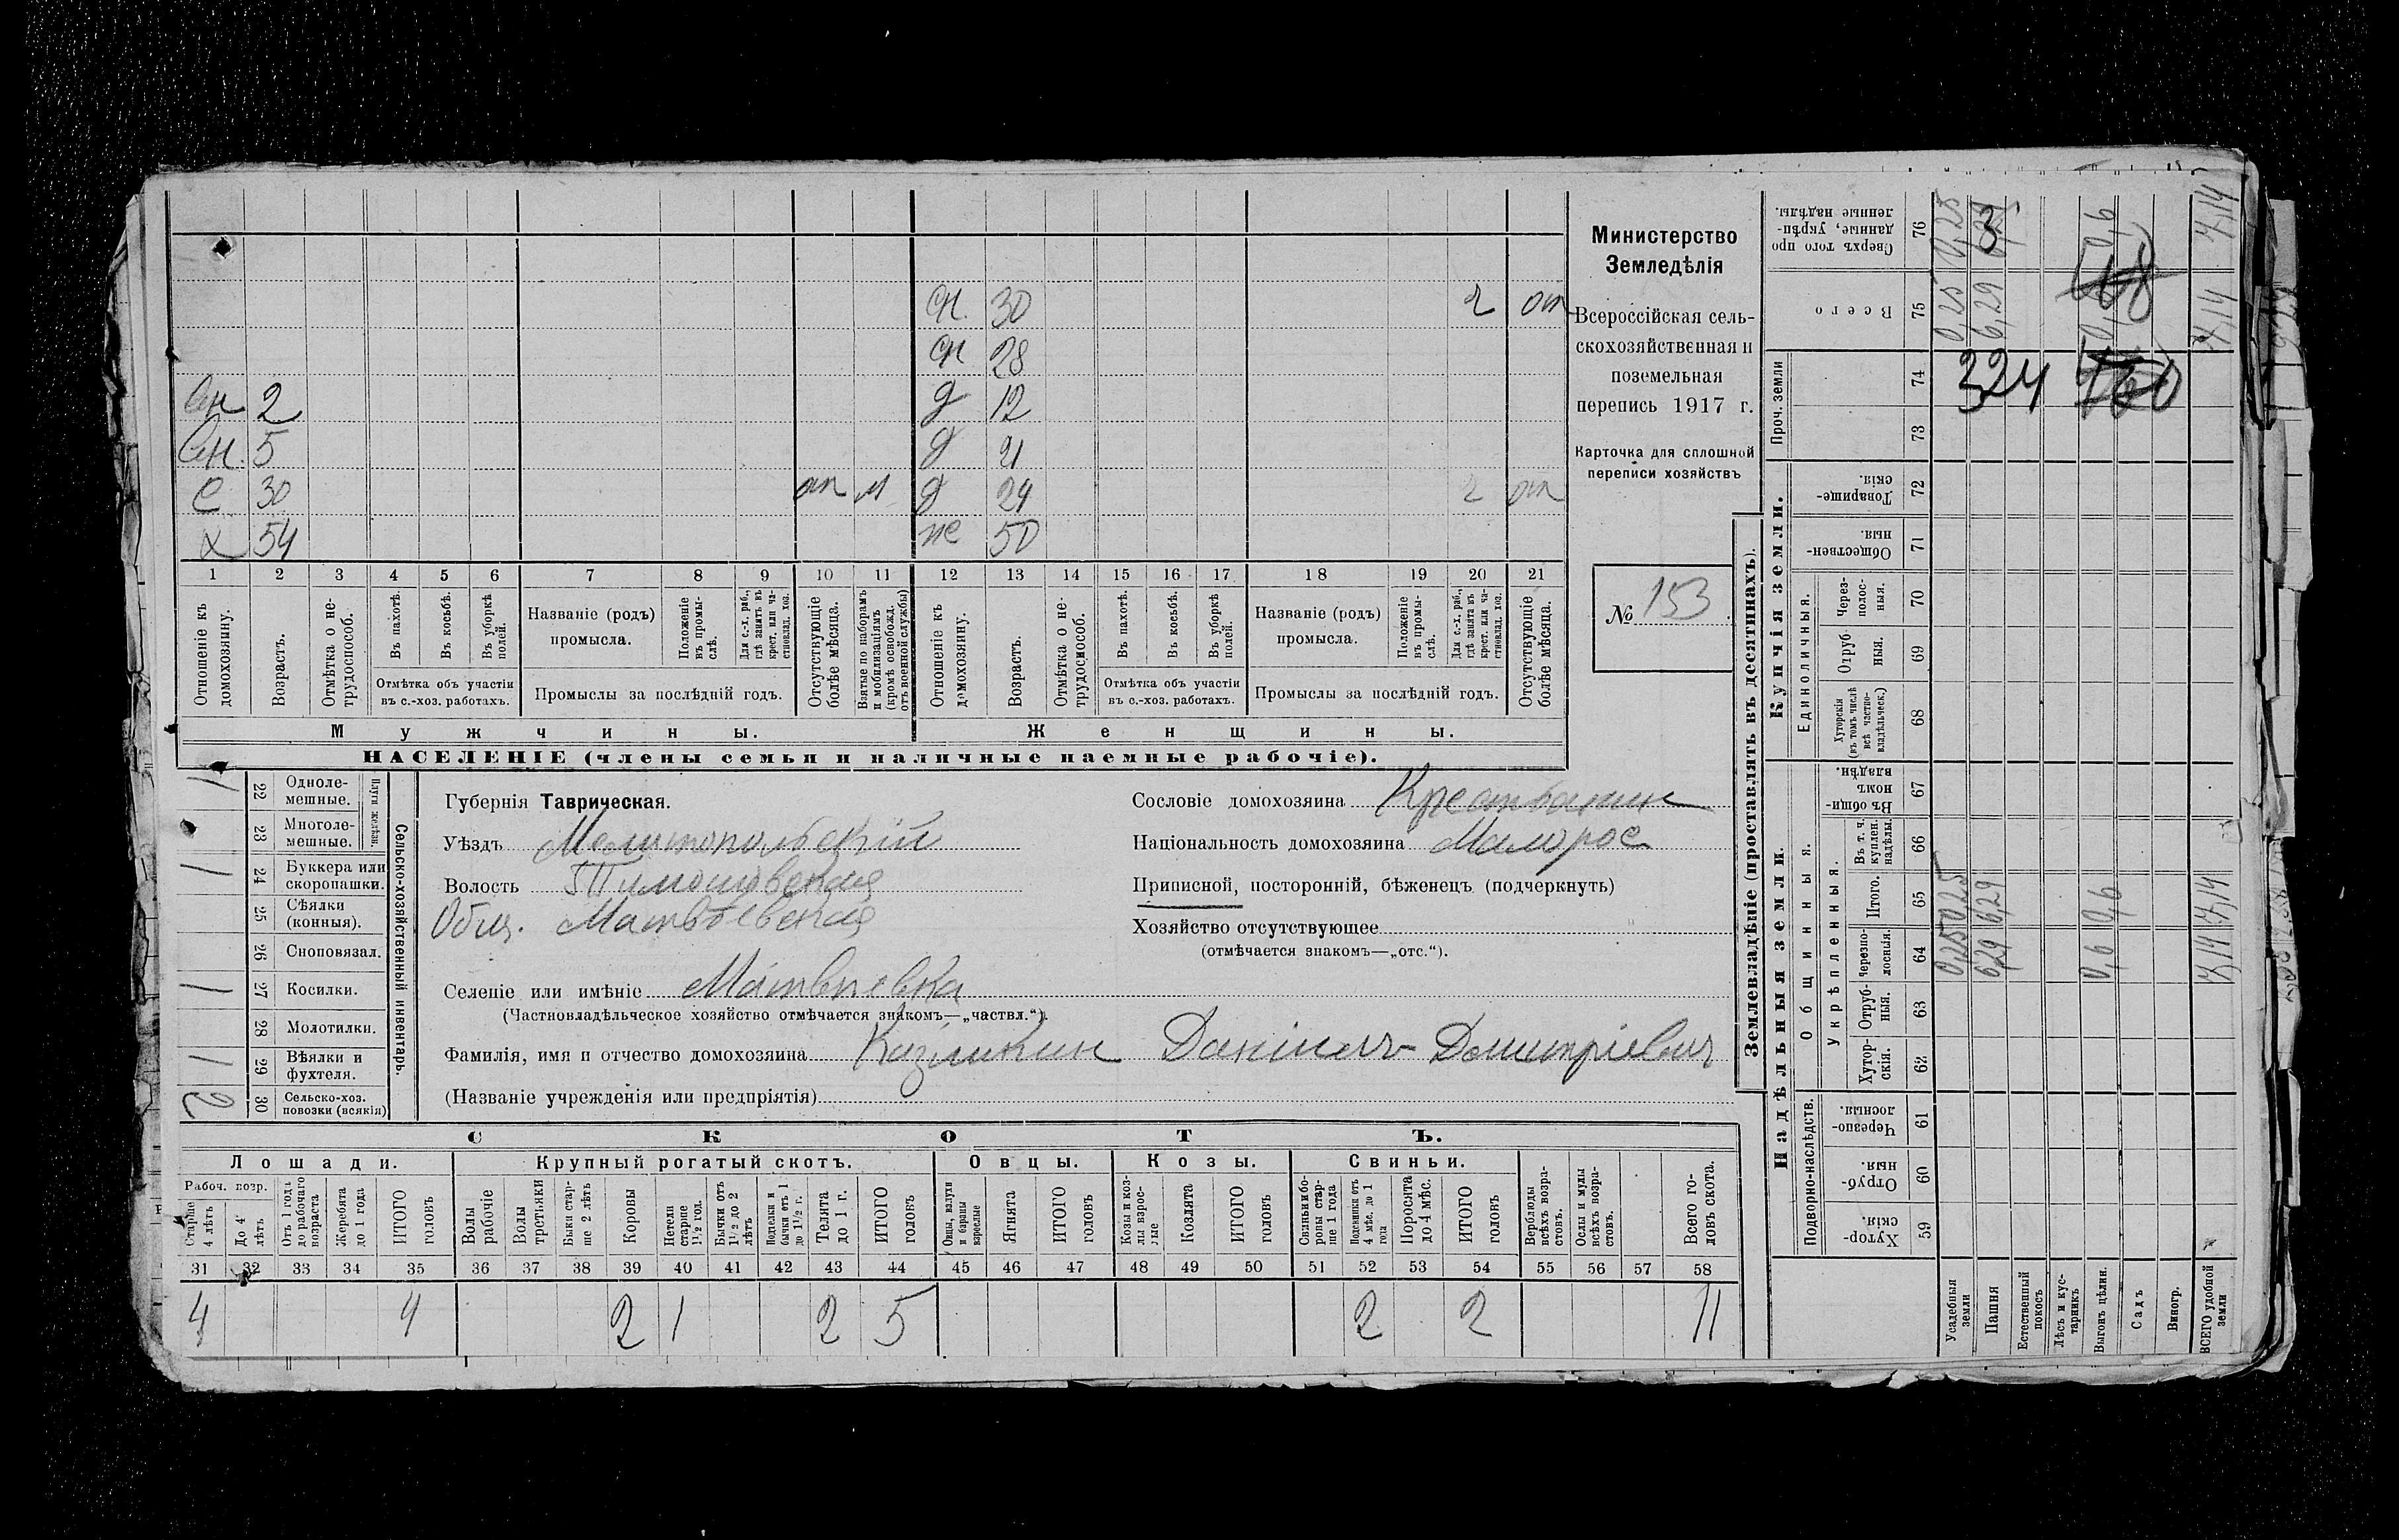 сн. 30 2 от
сн 28
Сн 2 д 12
Сн. 5 д 21
С 30 от м д 24 2 от
х 54 же 50
1 2 3 4 5 6 7 8 9 10 11 12 13 14 15 16 17 18 19 20 21
Отношеніе къ домохозяину.
Возрастъ.
Отмѣтка о не-трудоспособ.
Въ пахотѣ.
Въ косьбѣ.
Въ уборкѣ полей.
Отмѣтка объ участіи
въ с.-хоз. работахъ.
Названіе (родъ)
промысла.
Положеніе въ промы-слѣ.
Для с.-х. раб., гдѣ занятъ въ крест. или ча-стновлад. хоз.
Промыслы за послѣдній годъ.
Отсутствующіе болѣе мѣсяца.
Взятые по наборамъ и мобилизаціямъ (кромѣ освобожд. отъ военной службы)
Отношеніе къ домохозяину.
Возрастъ.
Отмѣтка о не-трудоспособ.
Въ пахотѣ.
Въ косьбѣ.
Въ уборкѣ полей.
Отмѣтка объ участіи
въ с.-хоз. работахъ.
Названіе (родъ)
промысла.
Положеніе въ промы-слѣ.
Для с.-х. раб., гдѣ занята въ крест. или ча-стновлад. хоз.
Промыслы за послѣдній годъ.
Отсутствующіе болѣе мѣсяца.
Мужчины. Женщины.
НАСЕЛЕНІЕ (члены семьи и наличные наемные рабочіе).
Министерство
Земледѣлія
Всероссійская сель-
скохозяйственная и
поземельная
перепись 1917 г.
Карточка для сплошной
переписи хозяйствъ
№ 153
Сельско-хозяйственный инвентарь.
Плуги желѣзн.
1 22 Одноле-мешные.
23 Многоле-мешные.
1 24 Буккера или скоропашки.
25 Сѣялки (конныя).
26 Сноповязал.
1 27 Косилки.
28 Молотилки.
1 29 Вѣялки и фухтеля.
2 30 Сельско-хоз. повозки (всякія)
Губернія Таврическая.
Уѣздъ Мелитопольскій
Волость Тимошовская
Общ. Матвѣевская
Селеніе или имѣніе Матвѣевка
(Частновладѣльческое хозяйство отмѣчается знакомъ—„частвл.“).
Фамилія, имя и отчество домохозяина Данiилъ Дмитріевич
(Названіе учрежденія или предпріятія)
Сословіе домохозяина Крестьянин
Національность домохозяина Малорос
Приписной, посторонній, бѣженецъ (подчеркнуть)
Хозяйство отсутствующее
(отмѣчается знакомъ—„отс.“).
СКОТЪ.
Лошади. Крупный рогатый скотъ. Овцы. Козы. Свиньи.
Рабоч. возр.
Старше 4 лѣтъ
До 4 лѣтъ
Отъ 1 года до рабочаго возраста
Жеребята до 1 года
ИТОГО головъ
Волы рабочіе
Волы третьяки
Быки стар-ше 2 лѣтъ
Коровы
Нетели старше 1½ год.
Бычки отъ 1½ до 2 лѣтъ
Подтелки и бычки отъ 1 до 1½ г.
Телята до 1 г.
ИТОГО головъ
Овцы, валухи и бараны взрослые
Ягнята
ИТОГО головъ
Козы и коз-лы взрос-лые
Козлята
ИТОГО головъ
Свиньи и бо-ровы стар-ше 1 года
Подсвинки отъ 4 мѣс. до 1 года
Поросята до 4 мѣс.
ИТОГО головъ
Верблюды всѣхъ возра-стовъ.
Ослы и мулы всѣхъ возра-стовъ.
Всего го-ловъ скота.
31 32 33 34 35 36 37 38 39 40 41 42 43 44 45 46 47 48 49 50 51 52 53 54 55 56 57 58
4 4 2 1 2 5 2 2 11
Землевладѣніе (проставлять въ десятинахъ).
Надѣльныя земли.
Подворно-наслѣдств.
Хутор-скія. 59
Отруб-ныя. 60
Черезпо-лосныя. 61
Общинныя.
Укрѣпленныя.
Хутор-скія. 62
Отруб-ныя. 63
Черезпо-лосныя. 64
Итого. 65
Въ т. ч. куплен. надѣлы. 66
Въ общин-номъ владѣн. 67
Купчія земли.
Единоличныя.
Хуторскія (въ томъ числѣ всѣ частно-владѣльческ.) 68
Отруб-ныя. 69
Через-полос-ныя. 70
Обществен-ныя. 71
Товарище-скія. 72
Проч. земли
73
74
Всего 75
Сверхъ того про-данные, укрѣп-ленные надѣлы. 76
Усадебныя земли 0,25 0,25 0,25 0,25
Пашня 6,29 6,29 6,29
Естественный покосъ
Лѣсъ и кус-тарникъ
Выгонъ цѣлин. 0,6 0,6 0,6
Садъ
Виногр.
ВСЕГО удобной земли 7,14 7,14 7,14 7,14
324
3